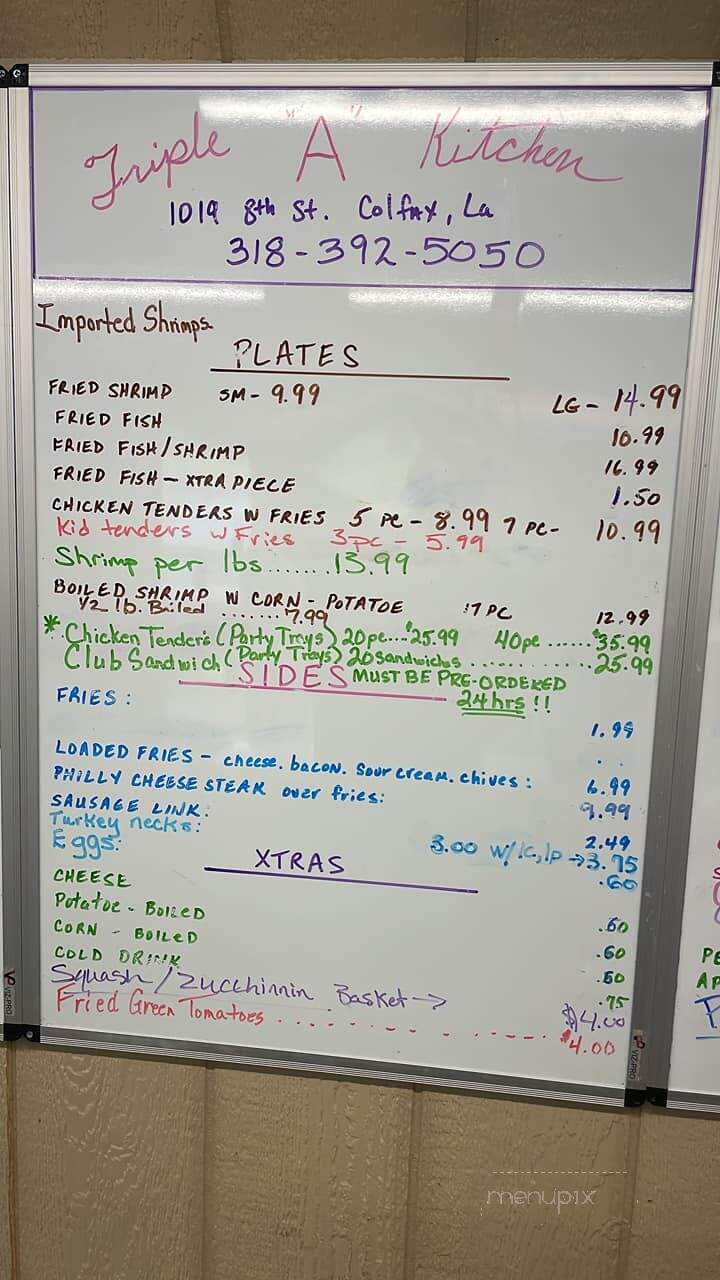 Triple "A" Kitchen
1019 8th St. Colfax, La
318-392-5050
Imported Shrimps
PLATES
FRIED SHRIMP SM- 9.99 LG- 14.99
FRIED FISH 10.99
FRIED FISH/SHRIMP 16.99
FRIED FISH - XTRA PIECE 1.50
CHICKEN TENDERS W FRIES 5 PC - 8.99 7 PC- 10.99
Kid tenders w Fries 3pc - 5.99
Shrimp per lbs.......13.99
BOILED SHRIMP W CORN - POTATOE 17 PC 12.99
1/2 lb. Boiled .......7.99
* Chicken Tenders (Party Trays) 20pc....$25.99 40pc ......$35.99
Club Sandwich (Party Trays) 20 sandwiches ...........25.99
SIDES MUST BE PRE-ORDERED
24hrs!!
FRIES: 1.99
LOADED FRIES - cheese. bacon. sour cream. chives: 6.99
PHILLY CHEESE STEAK over fries: 9.99
SAUSAGE LINK: 2.49
Turkey necks: 3.00 w/1c,1p → 3.75
Eggs: .60
XTRAS
CHEESE .60
Potatoe - BOILED .60
CORN - BOILED .60
COLD DRINK .75
Squash/Zucchinnin Basket → $4.00
Fried Green Tomatoes ........... $4.00
PE
AP
VIZ-PRO
VIZ-PRO
menupix